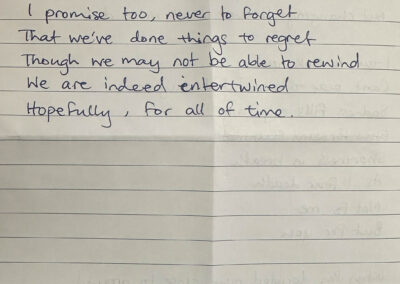 I promise too, never to forget
That we've done things to regret
Though we may not be able to rewind
We are indeed entertwined
Hopefully, for all of time.